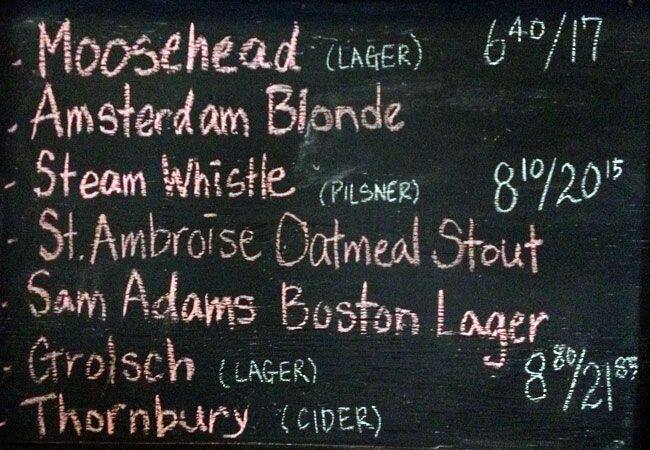 - Moosehead (LAGER) 6⁴⁰/17
- Amsterdam Blonde
- Steam Whistle (PILSNER) 8¹⁰/20¹⁵
- St. Ambroise Oatmeal Stout
- Sam Adams Boston Lager
- Grolsch (LAGER) 8⁸⁰/21⁸⁵
- Thornbury (CIDER)